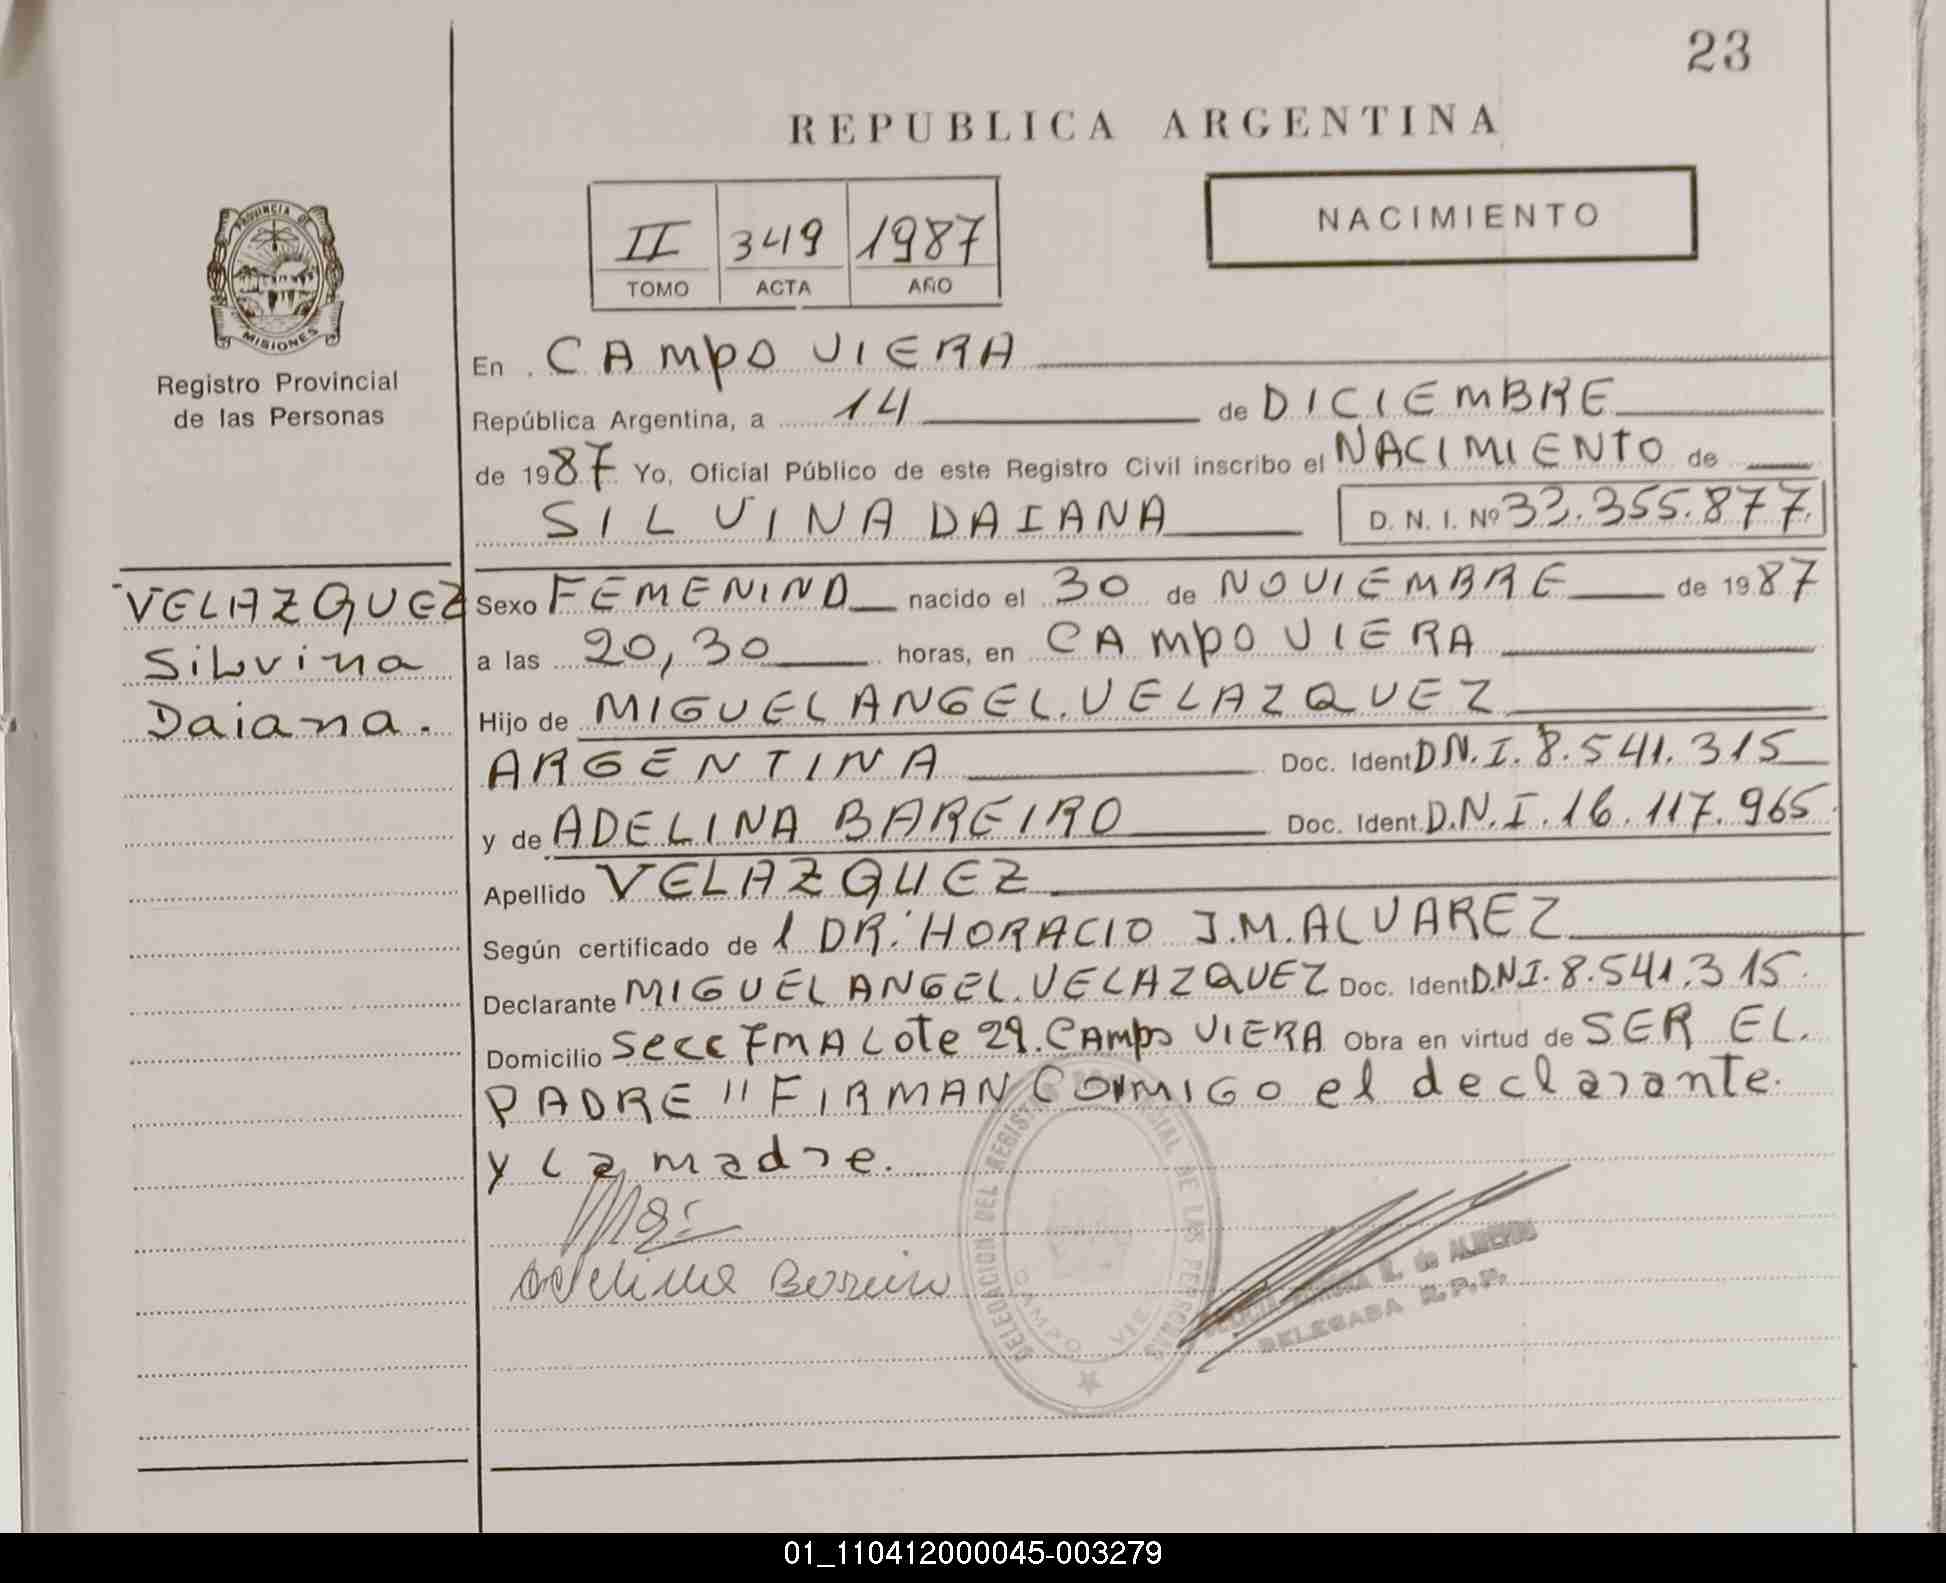 23
REPUBLICA ARGENTINA
II 349 1987
TOMO ACTA AÑO
NACIMIENTO
PROVINCIA DE
MISIONES
Registro Provincial
de las Personas
En CAMPO VIERA
República Argentina, a 14 de DICIEMBRE
de 1987 Yo, Oficial Público de este Registro Civil inscribo el NACIMIENTO de
SILVINA DAIANA D. N. I. Nº 33.355.877.
VELAZQUEZ
Silvina
Daiana.
Sexo FEMENINO nacido el 30 de NOVIEMBRE de 1987
a las 20,30 horas, en CAMPO VIERA
Hijo de MIGUEL ANGEL. VELAZQUEZ
ARGENTINA Doc. Ident D.N.I. 8.541.315
y de ADELINA BAREIRO Doc. Ident. D.N.I. 16.117.965.
Apellido VELAZQUEZ
Según certificado de l DR. HORACIO J.M. ALVAREZ
Declarante MIGUEL ANGEL. VELAZQUEZ Doc. Ident D.N.I. 8.541.315.
Domicilio Secc 7MA Lote 29. CAMPO VIERA Obra en virtud de SER EL.
PADRE " FIRMAN CONMIGO el declarante.
y La madre.
Adelina Bareiro
DELEGACION DEL REGISTRO PROVINCIAL DE LAS PERSONAS
CAMPO VIE
de ALMEYDA
DELEGADA R.P.P.
01_110412000045-003279